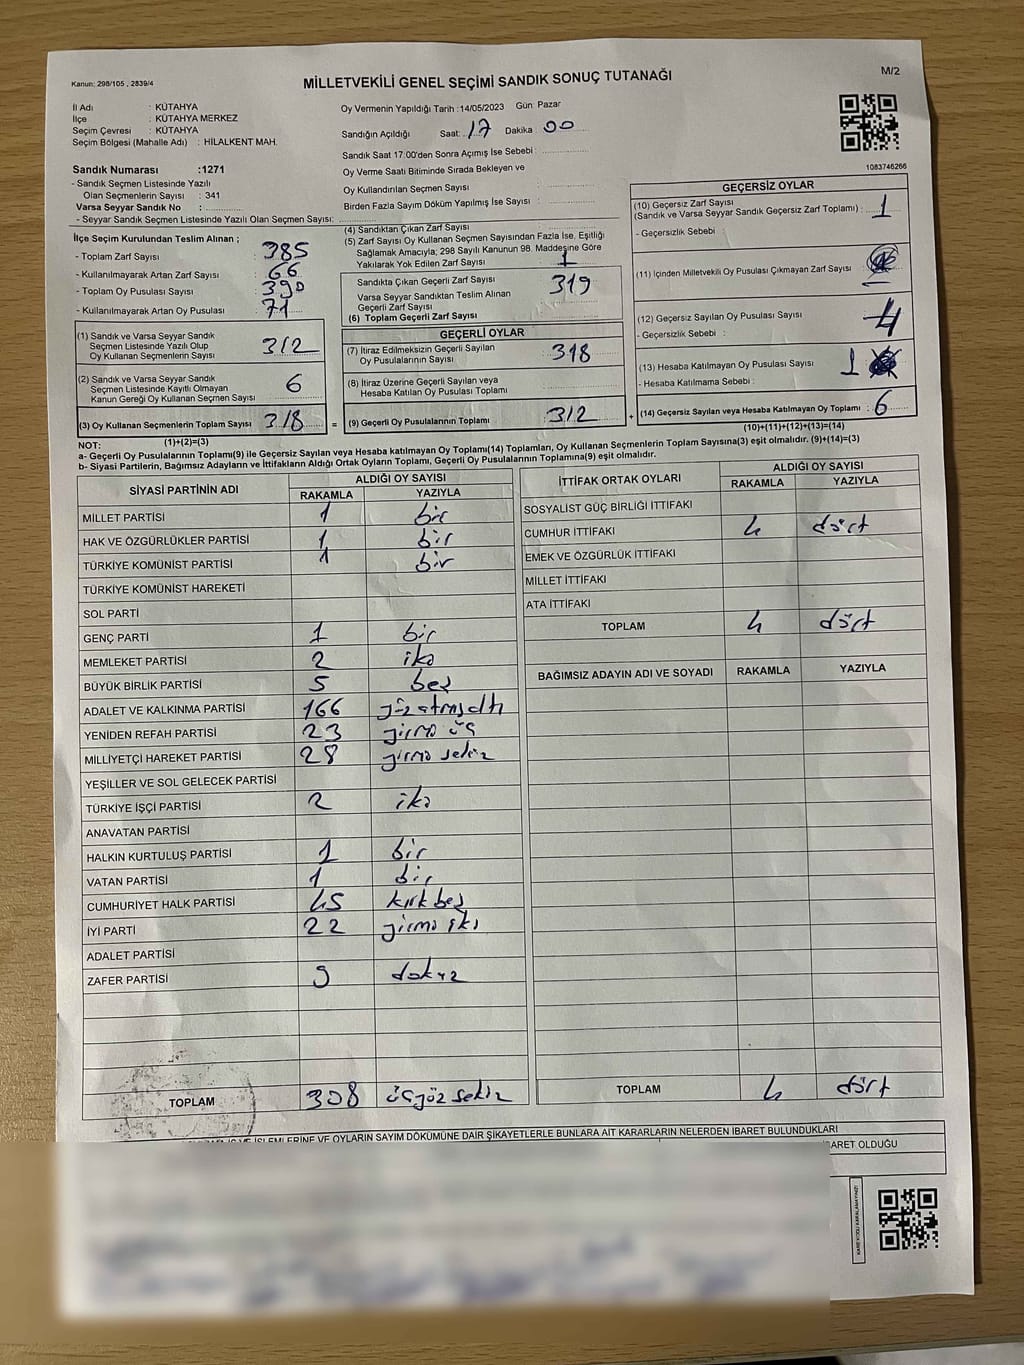 Kanun: 298/105 , 2839/4
MİLLETVEKİLİ GENEL SEÇİMİ SANDIK SONUÇ TUTANAĞI
M/2
İl Adı : KÜTAHYA
İlçe : KÜTAHYA MERKEZ
Seçim Çevresi : KÜTAHYA
Seçim Bölgesi (Mahalle Adı) : HİLALKENT MAH.
Sandık Numarası :1271
- Sandık Seçmen Listesinde Yazılı
Olan Seçmenlerin Sayısı : 341
Varsa Seyyar Sandık No :
- Seyyar Sandık Seçmen Listesinde Yazılı Olan Seçmen Sayısı:
Oy Vermenin Yapıldığı Tarih :14/05/2023 Gün: Pazar
Sandığın Açıldığı Saat: 17 Dakika : 00
Sandık Saat 17:00'den Sonra Açımış İse Sebebi :
Oy Verme Saati Bitiminde Sırada Bekleyen ve
Oy Kullandırılan Seçmen Sayısı :
Birden Fazla Sayım Döküm Yapılmış İse Sayısı :
1083746266
İlçe Seçim Kurulundan Teslim Alınan ;
- Toplam Zarf Sayısı : 385
- Kullanılmayarak Artan Zarf Sayısı : 66
- Toplam Oy Pusulası Sayısı : 390
- Kullanılmayarak Artan Oy Pusulası : 71
(1) Sandık ve Varsa Seyyar Sandık
Seçmen Listesinde Yazılı Olup
Oy Kullanan Seçmenlerin Sayısı : 312
(2) Sandık ve Varsa Seyyar Sandık
Seçmen Listesinde Kayıtlı Olmayan
Kanun Gereği Oy Kullanan Seçmen Sayısı : 6
(3) Oy Kullanan Seçmenlerin Toplam Sayısı : 318
(1)+(2)=(3)
(4) Sandıktan Çıkan Zarf Sayısı :
(5) Zarf Sayısı Oy Kullanan Seçmen Sayısından Fazla İse, Eşitliği
Sağlamak Amacıyla, 298 Sayılı Kanunun 98. Maddesine Göre
Yakılarak Yok Edilen Zarf Sayısı : 1
Sandıkta Çıkan Geçerli Zarf Sayısı : 319
Varsa Seyyar Sandıktan Teslim Alınan
Geçerli Zarf Sayısı :
(6) Toplam Geçerli Zarf Sayısı :
GEÇERLİ OYLAR
(7) İtiraz Edilmeksizin Geçerli Sayılan
Oy Pusulalarının Sayısı : 318
(8) İtiraz Üzerine Geçerli Sayılan veya
Hesaba Katılan Oy Pusulası Toplamı :
= (9) Geçerli Oy Pusulalarının Toplamı : 312
GEÇERSİZ OYLAR
(10) Geçersiz Zarf Sayısı
(Sandık ve Varsa Seyyar Sandık Geçersiz Zarf Toplamı) : 1
- Geçersizlik Sebebi :
(11) İçinden Milletvekili Oy Pusulası Çıkmayan Zarf Sayısı :
(12) Geçersiz Sayılan Oy Pusulası Sayısı : 4
- Geçersizlik Sebebi :
(13) Hesaba Katılmayan Oy Pusulası Sayısı : 1
- Hesaba Katılmama Sebebi :
+ (14) Geçersiz Sayılan veya Hesaba Katılmayan Oy Toplamı : 6
(10)+(11)+(12)+(13)=(14)
NOT:
a- Geçerli Oy Pusulalarının Toplamı(9) ile Geçersiz Sayılan veya Hesaba katılmayan Oy Toplamı(14) Toplamları, Oy Kullanan Seçmenlerin Toplam Sayısına(3) eşit olmalıdır. (9)+(14)=(3)
b- Siyasi Partilerin, Bağımsız Adayların ve İttifakların Aldığı Ortak Oyların Toplamı, Geçerli Oy Pusulalarının Toplamına(9) eşit olmalıdır.
SİYASİ PARTİNİN ADI ALDIĞI OY SAYISI
RAKAMLA YAZIYLA
MİLLET PARTİSİ 1 bir
HAK VE ÖZGÜRLÜKLER PARTİSİ 1 bir
TÜRKİYE KOMÜNİST PARTİSİ 1 bir
TÜRKİYE KOMÜNİST HAREKETİ
SOL PARTİ
GENÇ PARTİ 1 bir
MEMLEKET PARTİSİ 2 iki
BÜYÜK BİRLİK PARTİSİ 5 beş
ADALET VE KALKINMA PARTİSİ 166 yüz atmış altı
YENİDEN REFAH PARTİSİ 23 yirmi üç
MİLLİYETÇİ HAREKET PARTİSİ 28 yirmi sekiz
YEŞİLLER VE SOL GELECEK PARTİSİ
TÜRKİYE İŞÇİ PARTİSİ 2 iki
ANAVATAN PARTİSİ
HALKIN KURTULUŞ PARTİSİ 1 bir
VATAN PARTİSİ 1 bir
CUMHURİYET HALK PARTİSİ 45 kırk beş
İYİ PARTİ 22 yirmi iki
ADALET PARTİSİ
ZAFER PARTİSİ 9 dokuz
TOPLAM 308 üçyüz sekiz
İTTİFAK ORTAK OYLARI ALDIĞI OY SAYISI
RAKAMLA YAZIYLA
SOSYALİST GÜÇ BİRLİĞİ İTTİFAKI
CUMHUR İTTİFAKI 4 dört
EMEK VE ÖZGÜRLÜK İTTİFAKI
MİLLET İTTİFAKI
ATA İTTİFAKI
TOPLAM 4 dört
BAĞIMSIZ ADAYIN ADI VE SOYADI RAKAMLA YAZIYLA
TOPLAM 4 dört
İŞLEMLERİNE VE OYLARIN SAYIM DÖKÜMÜNE DAİR ŞİKAYETLERLE BUNLARA AİT KARARLARIN NELERDEN İBARET BULUNDUKLARI
İBARET OLDUĞU
KARE KODU KARALAMAYINIZ!